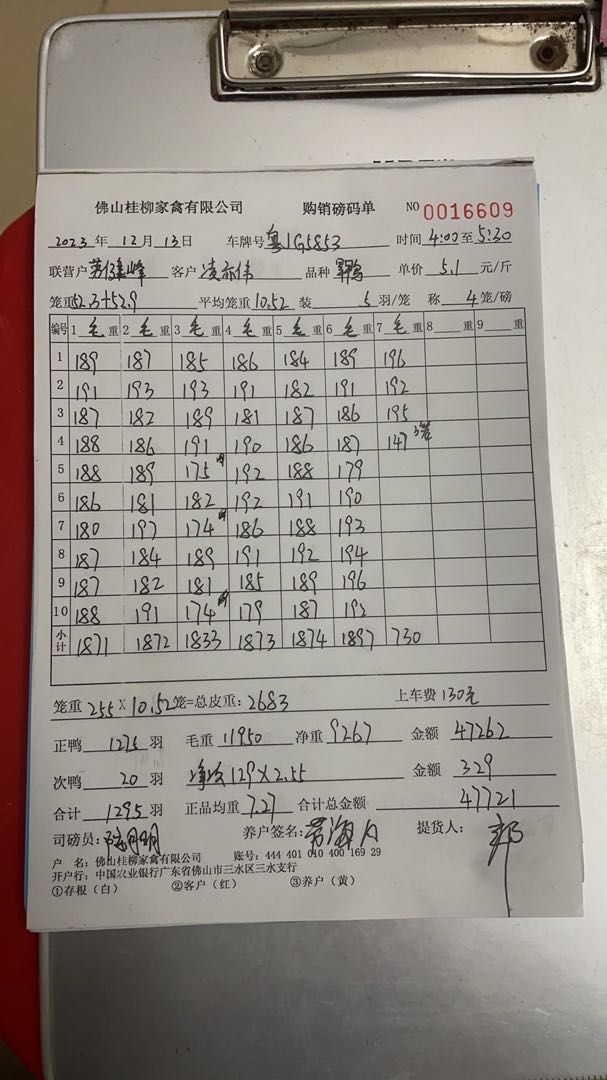 佛山桂柳家禽有限公司 购销磅码单 NO 0016609
2023 年 12 月 13 日 车牌号 粤JG5853 时间 4:00 至 5:30
联营户 客户 凌亦伟 品种 单价 5.1 元/斤
笼重 52.3+52.9 平均笼重 10.52 装 5 羽/笼 称 4 笼/磅
编号 1 毛 重 2 毛 重 3 毛 重 4 毛 重 5 毛 重 6 毛 重 7 毛 重 8 重 9 重
1 189 187 185 186 184 189 196
2 191 193 193 191 182 191 192
3 187 182 189 181 187 186 195
4 188 186 191 190 186 187 147 3笼
5 188 189 175 192 188 179
6 186 181 182 192 191 190
7 180 197 174 186 188 193
8 187 184 189 191 192 194
9 187 182 181 185 189 196
10 188 191 174 179 187 192
小计 1871 1872 1833 1873 1874 1897 730
笼重 255 X 10.52 笼=总皮重: 2683 上车费 130元
正鸭 1275 羽 毛重 11950 净重 9267 金额 47262
次鸭 20 羽 净次129X2.55 金额 329
合计 1295 羽 正品均重 7.27 合计总金额 47721
司磅员: 养户签名: 提货人:
户 名: 佛山桂柳家禽有限公司 账号: 444 401 010 400 169 29
开户行: 中国农业银行广东省佛山市三水区三水支行
①存根(白) ②客户(红) ③养户(黄)